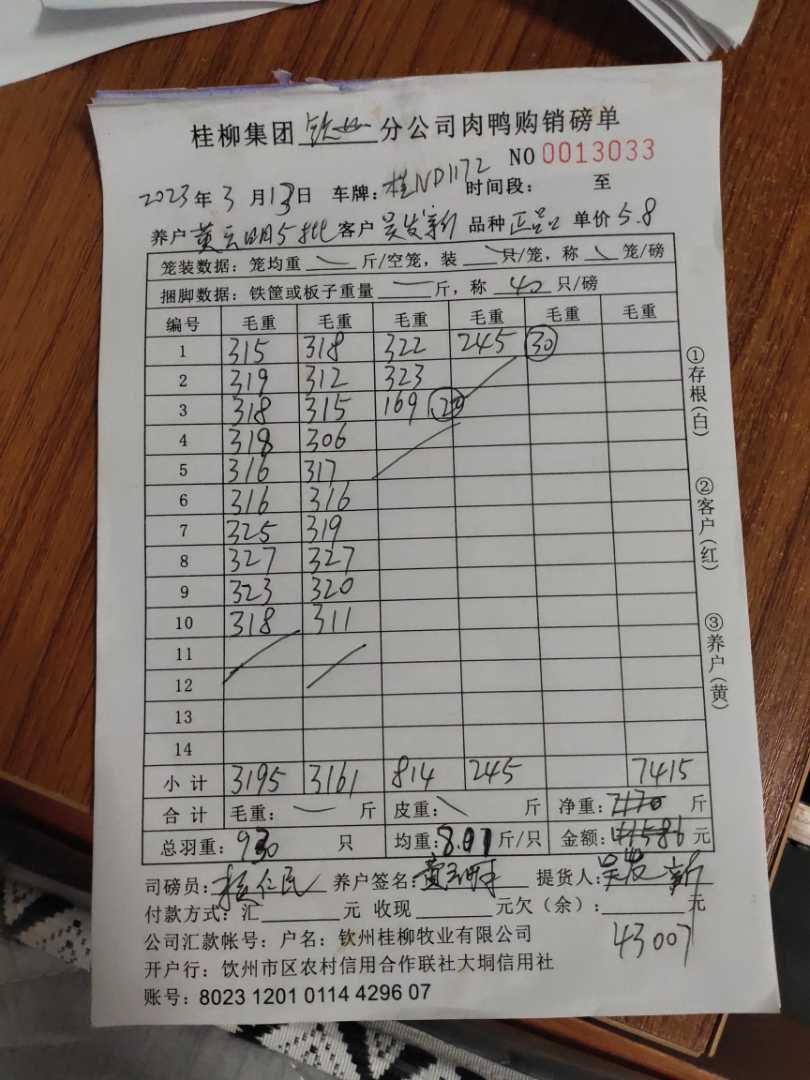 桂柳集团 钦州 分公司肉鸭购销磅单
NO 0013033
2023年3月13日 车牌：桂ND1172 时间段： 至
养户 黄云明5批 客户 吴发新 品种 正品 单价 5.8
笼装数据：笼均重 斤/空笼，装 只/笼，称 笼/磅
捆脚数据：铁筐或板子重量 斤，称 40 只/磅
编号 毛重 毛重 毛重 毛重 毛重 毛重
1 315 318 322 245 30
2 319 312 323
3 318 315 169
4 318 306
5 316 317
6 316 316
7 325 319
8 327 327
9 323 320
10 318 311
11
12
13
14
小计 3195 3161 814 245 7415
合计 毛重： 斤 皮重： 斤 净重：7170 斤
总羽重：930 只 均重： 斤/只 金额：41586 元
司磅员： 仁民 养户签名：黄云明 提货人：吴发新
付款方式：汇 元 收现 元欠（余）： 元
43007
公司汇款帐号：户名：钦州桂柳牧业有限公司
开户行：饮州市区农村信用合作联社大垌信用社
账号：8023 1201 0114 4296 07
①存根（白）
②客户（红）
③养户（黄）